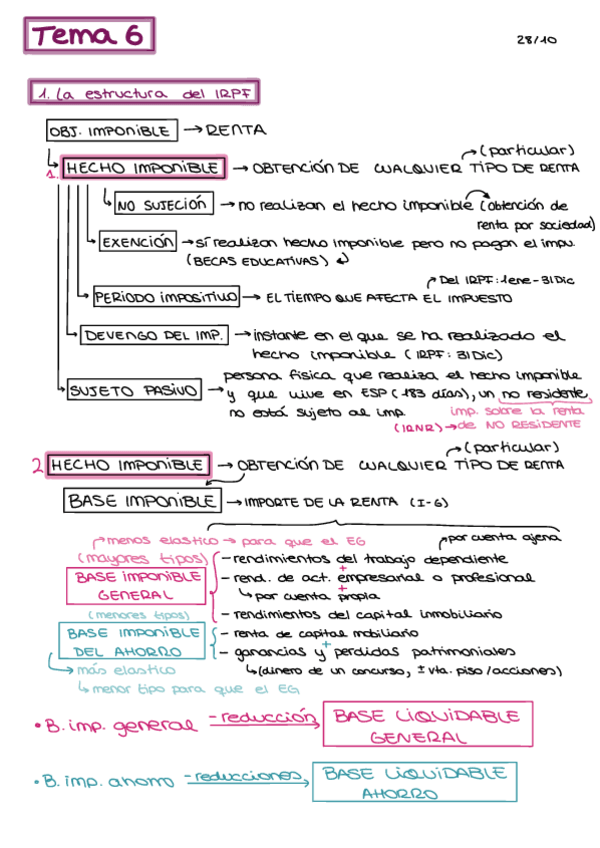 Tema 6
28/10
1. La estructura del IRPF
OBJ. IMPONIBLE → RENTA
(particular)
1. HECHO IMPONIBLE → OBTENCIÓN DE CUALQUIER TIPO DE RENTA
NO SUJECIÓN → no realizan el hecho imponible (obtención de
renta por sociedad)
EXENCIÓN → sí realizan hecho imponible pero no pagan el impu.
(BECAS EDUCATIVAS)
Del IRPF: 1ene-31Dic
PERIODO IMPOSITIVO → EL TIEMPO QUE AFECTA EL IMPUESTO
DEVENGO DEL IMP. → instante en el que se ha realizado el
hecho imponible (IRPF: 31Dic)
persona física que realiza el hecho imponible
SUJETO PASIVO → y que vive en ESP (183 días), un no residente,
no está sujeto al imp. imp. sobre la renta
(IRNR) → de NO RESIDENTE
(particular)
2. HECHO IMPONIBLE → OBTENCIÓN DE CUALQUIER TIPO DE RENTA
BASE IMPONIBLE → IMPORTE DE LA RENTA (I-G)
menos elastico → para que el EG
por cuenta ajena
(mayores tipos) - rendimientos del trabajo dependiente
+
BASE IMPONIBLE - rend. de act. empresarial o profesional
GENERAL por cuenta propia
+
(menores tipos) - rendimientos del capital inmobiliario
BASE IMPONIBLE - renta de capital mobiliario
+
DEL AHORRO - ganancias y perdidas patrimoniales
más elastico (dinero de un concurso, ± vta. piso/acciones)
menor tipo para que el EG
• B. imp. general - reducción → BASE LIQUIDABLE
GENERAL
• B. imp. ahorro - reducciones → BASE LIQUIDABLE
AHORRO